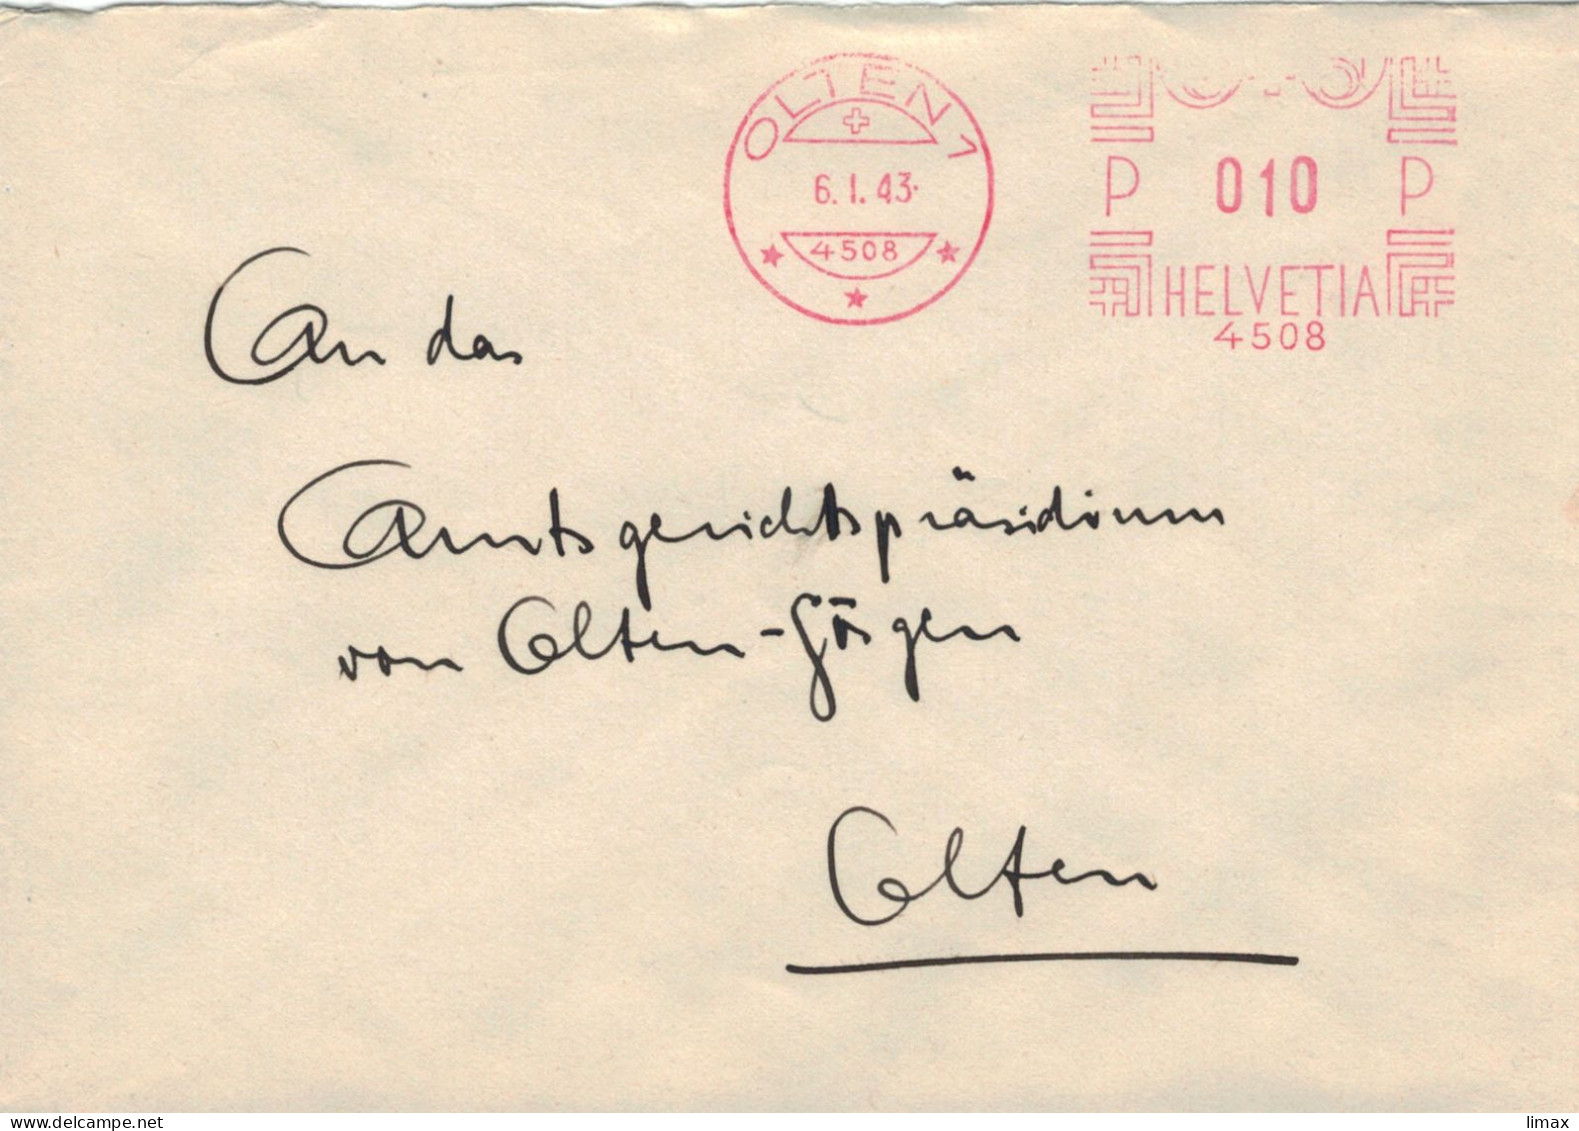 OLTEN 1
6. I. 43.
4508
P 010 P
HELVETIA
4508
An das
Amtsgerichtspräsidium
von Olten-Gösgen
Olten
www.delcampe.net
limax